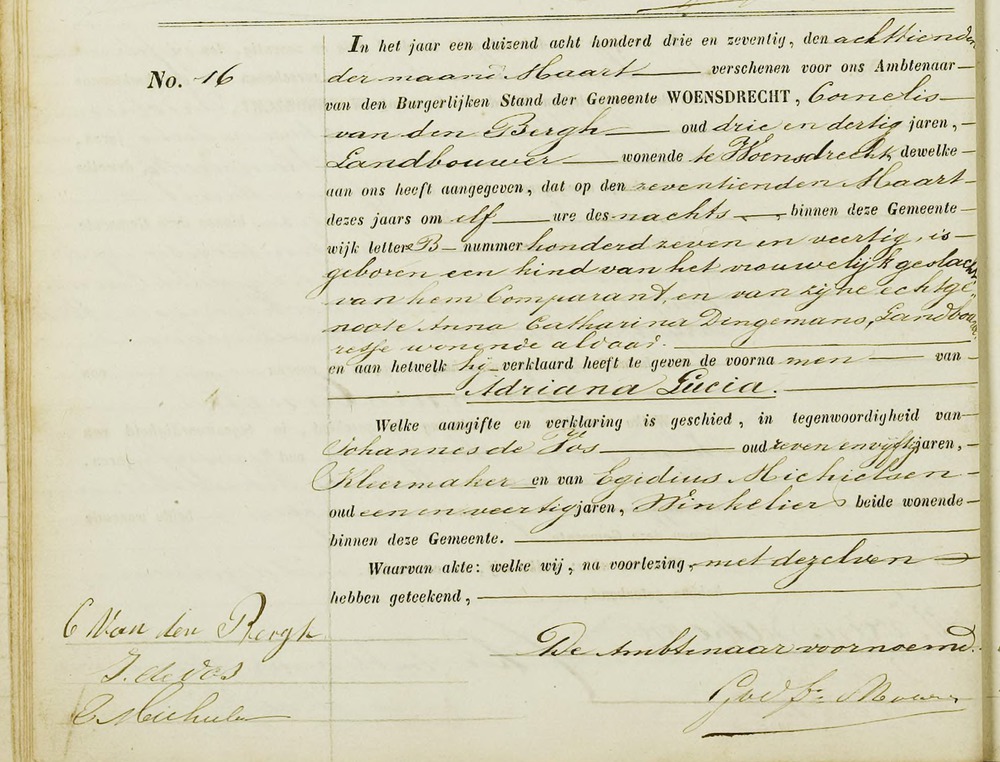 In het jaar een duizend acht honderd drie en zeventig, den achttienden
No. 16
der maand Maart verschenen voor ons Ambtenaar
van den Burgerlijken Stand der Gemeente WOENSDRECHT, Cornelis
van den Bergh oud drie en dertig jaren,
Landbouwer wonende te Woensdrecht, dewelke
aan ons heeft aangegeven, dat op den zeventienden Maart
dezes jaars om elf ure des nachts binnen deze Gemeente
wijk letter B nummer honderd zeven en veertig, is
geboren een kind van het vrouwelijk geslacht
van hem Comparant, en van zijne echtge„
noote Anna Catharina Dingemans, Landbou„
resse wonende aldaar.
en aan hetwelk hij verklaard heeft te geven de voorna men van
Adriana Lucia.
Welke aangifte en verklaring is geschied, in tegenwoordigheid van
Johannes de Vos oud zeven en vijftig jaren,
Kleermaker en van Egidius Michielsen
oud een en veertig jaren, Winkelier beide wonende
binnen deze Gemeente.
Waarvan akte: welke wij, na voorlezing, met dezelven
hebben geteekend,
C Van den Bergh
J. de Vos
De Ambtenaar voornoemd.